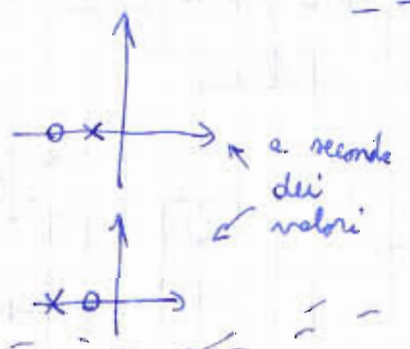 a seconda
dei
valori